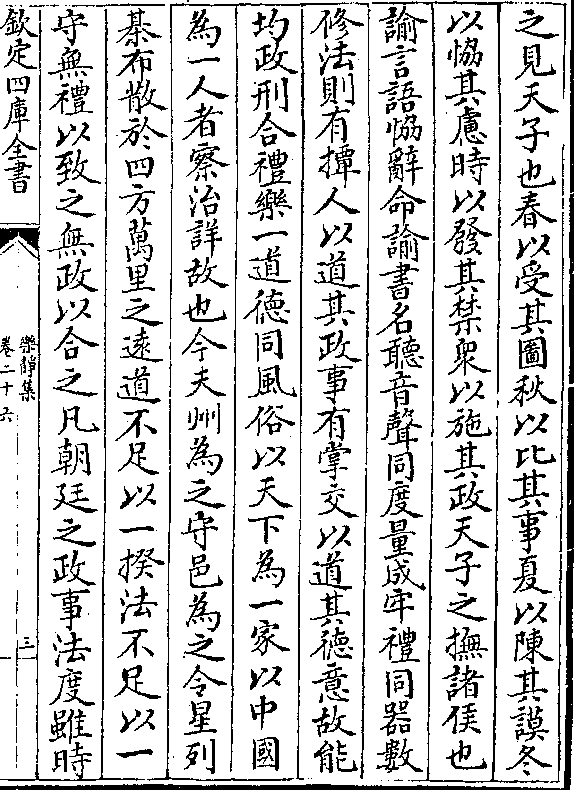 之見天子也春以受其圖秋以比其事夏以陳其謨冬
以恊其慮時以發其禁衆以施其政天子之撫諸侯也
諭言語恊辭命諭書名聽音聲同度量成牢禮同器數
修法則有撢人以道其政事有掌交以道其徳意故能
均政刑合禮樂一道徳同風俗以天下為一家以中國
為一人者察治詳故也今夫州為之守邑為之令星列
棊布散於四方萬里之逺道不足以一揆法不足以一
守無禮以致之無政以合之凡朝廷之政事法度雖時
欽定四庫全書
樂静集
卷二十六
三